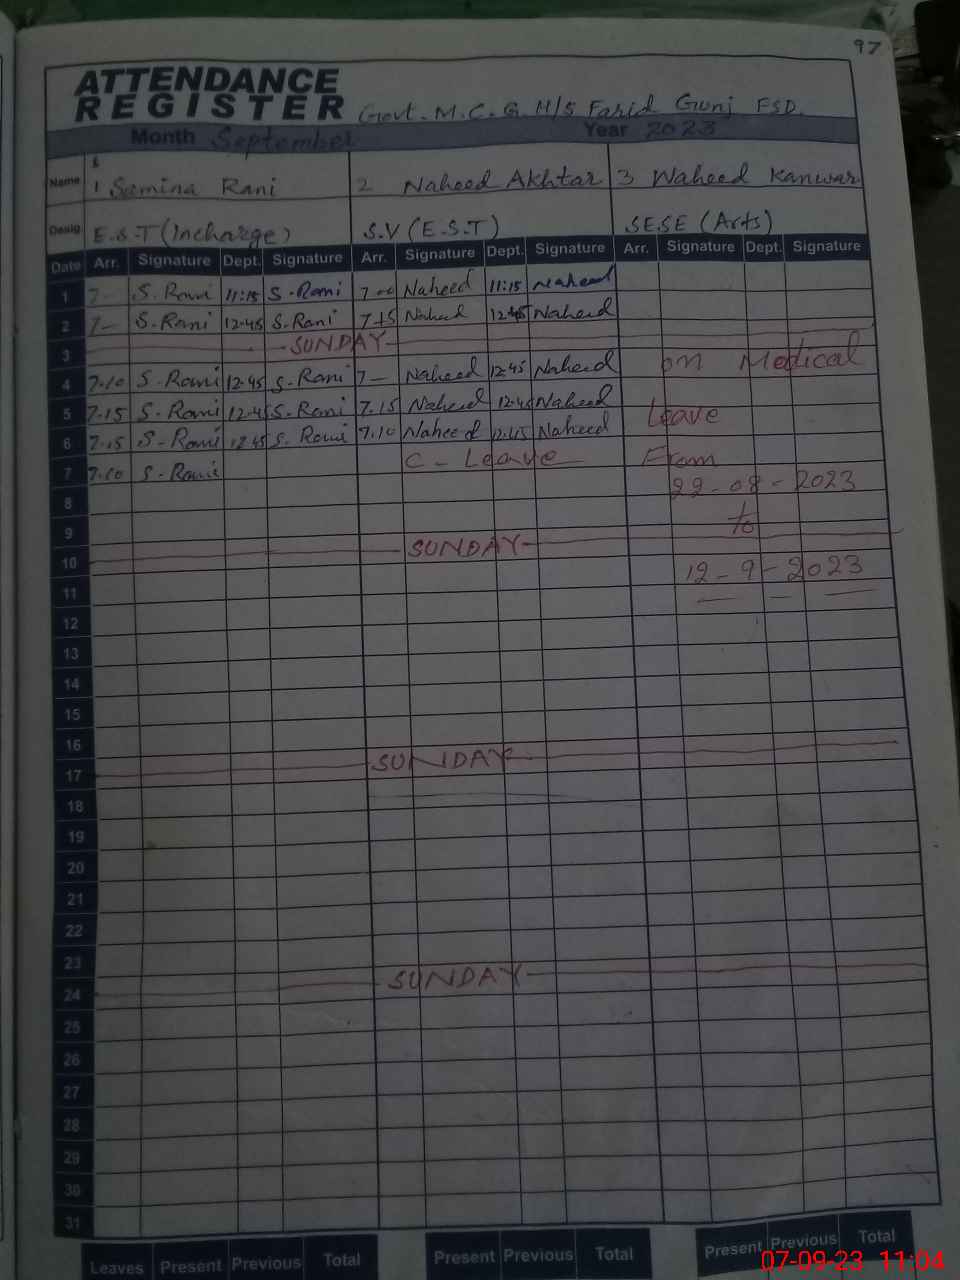 97
ATTENDANCE
REGISTER Govt. M.C.G.H/S Farid Gunj FSD.
Month September Year 2023
Name 1 Samina Rani 2 Naheed Akhtar 3 Waheed Kanwar
Desig E.S.T (Incharge) S.V (E.S.T) SESE (Arts)
Date Arr. Signature Dept. Signature Arr. Signature Dept. Signature Arr. Signature Dept. Signature
1 7- S. Rani 11:15 S. Rani 7-00 Naheed 11:15 Naheed
2 7- S. Rani 12-45 S. Rani 7-15 Naheed 12-45 Naheed
3 SUNDAY
on Medical
4 7.10 S. Rani 12-45 S. Rani 7- Naheed 12-45 Naheed
5 7.15 S. Rani 12-45 S. Rani 7.15 Naheed 12-45 Naheed Leave
6 7.15 S. Rani 12 45 S. Rani 7.10 Naheed Naheed
7 7.10 S. Rani C - Leave From
22-08-2023
8
9 to
10 SUNDAY
12-9-2023
11
12
13
14
15
16
17 SUNDAY
18
19
20
21
22
23
24 SUNDAY
25
26
27
28
29
30
31
Leaves Present Previous Total Present Previous Total Present Previous Total
07-09-23 11:04